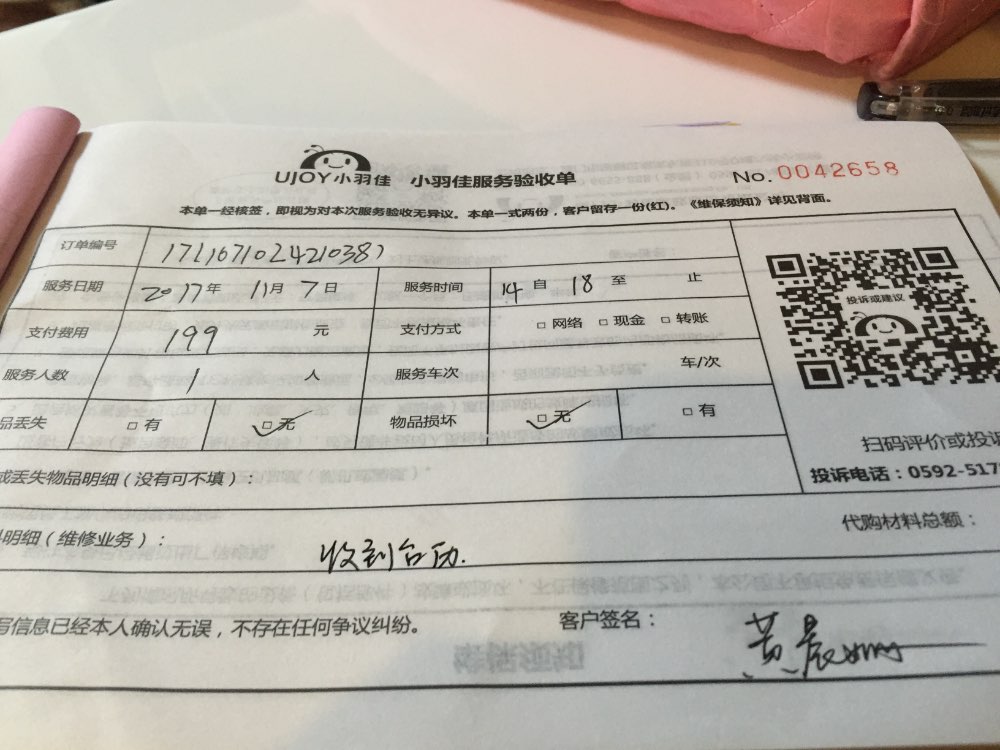 UJOY小羽佳 小羽佳服务验收单 No.0042658
本单一经核签，即视为对本次服务验收无异议。本单一式两份，客户留存一份(红)。《维保须知》详见背面。
订单编号
服务日期 2017年 11月 7日 服务时间 14 自 18 至 止
投诉或建议
支付费用 199 元 支付方式 □ 网络 □ 现金 □ 转账
服务人数 1 人 服务车次 车/次
品丢失 □ 有 □ 无 物品损坏 □ 无 □ 有
扫码评价或投诉
或丢失物品明细（没有可不填）：
投诉电话：0592-517
代购材料总额：
明细（维修业务）：
收到
写信息已经本人确认无误，不存在任何争议纠纷。 客户签名：
维保须知